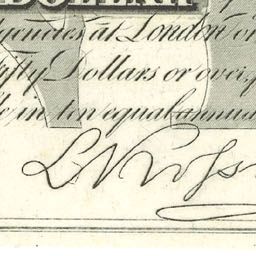 DOLLAR
Agencies at London or
Fifty Dollars or over,
in ten equal annua